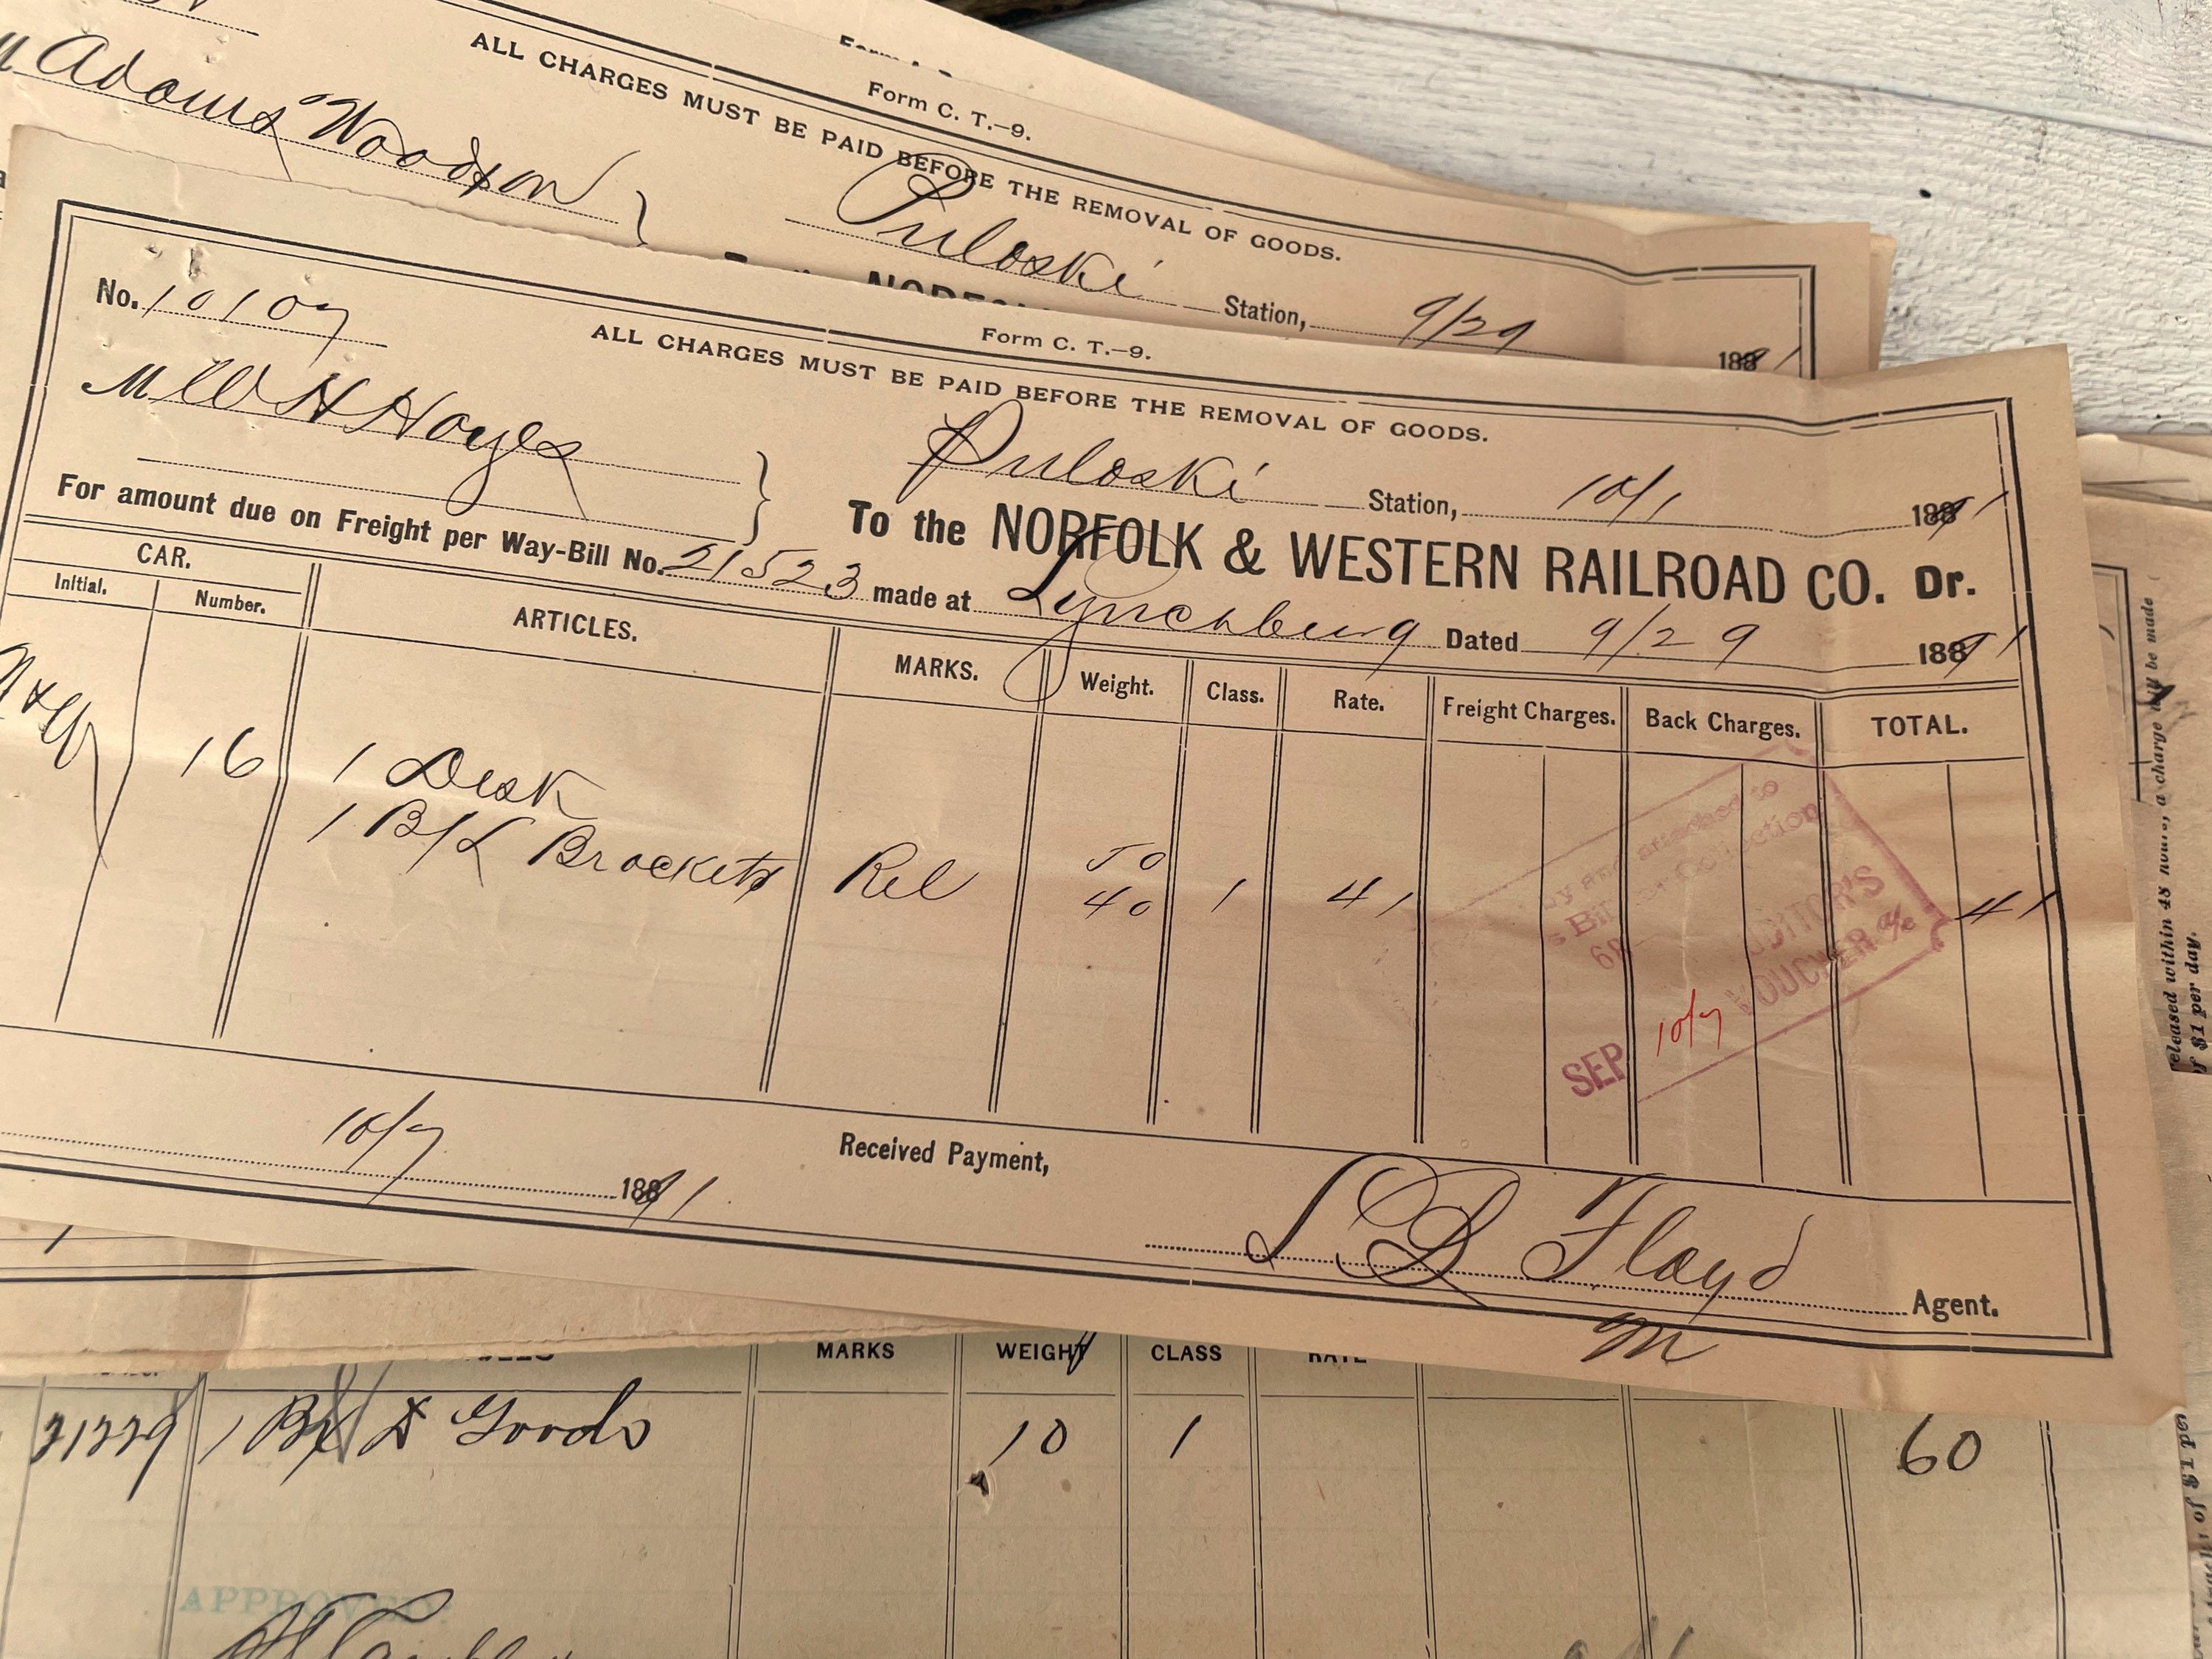 Form C. T.—9.
ALL CHARGES MUST BE PAID BEFORE THE REMOVAL OF GOODS.
M Adams Woodson
Puloski Station, 9/29 1881
No. 10107
Form C. T.—9.
ALL CHARGES MUST BE PAID BEFORE THE REMOVAL OF GOODS.
M W H Hayes
Puloski Station, 10/1 18891
To the NORFOLK & WESTERN RAILROAD CO. Dr.
For amount due on Freight per Way-Bill No. 21523 made at Lynchburg Dated 9/29 18891
CAR. ARTICLES. MARKS. Weight. Class. Rate. Freight Charges. Back Charges. TOTAL.
Initial. Number.
16 1 Desk 50
1 B/L Brackets Rel 40 1 41 41
attached to
Collection
AUDITOR'S
VOUCHER
SEP 10/7
10/7 18891.
Received Payment,
L D Floyd Agent.
m
MARKS WEIGHT CLASS RATE
31229 1 Bx D Goods 10 1 60
APPROVED.
released within 48 hours, a charge will be made
of $1 per day.
of $1 per